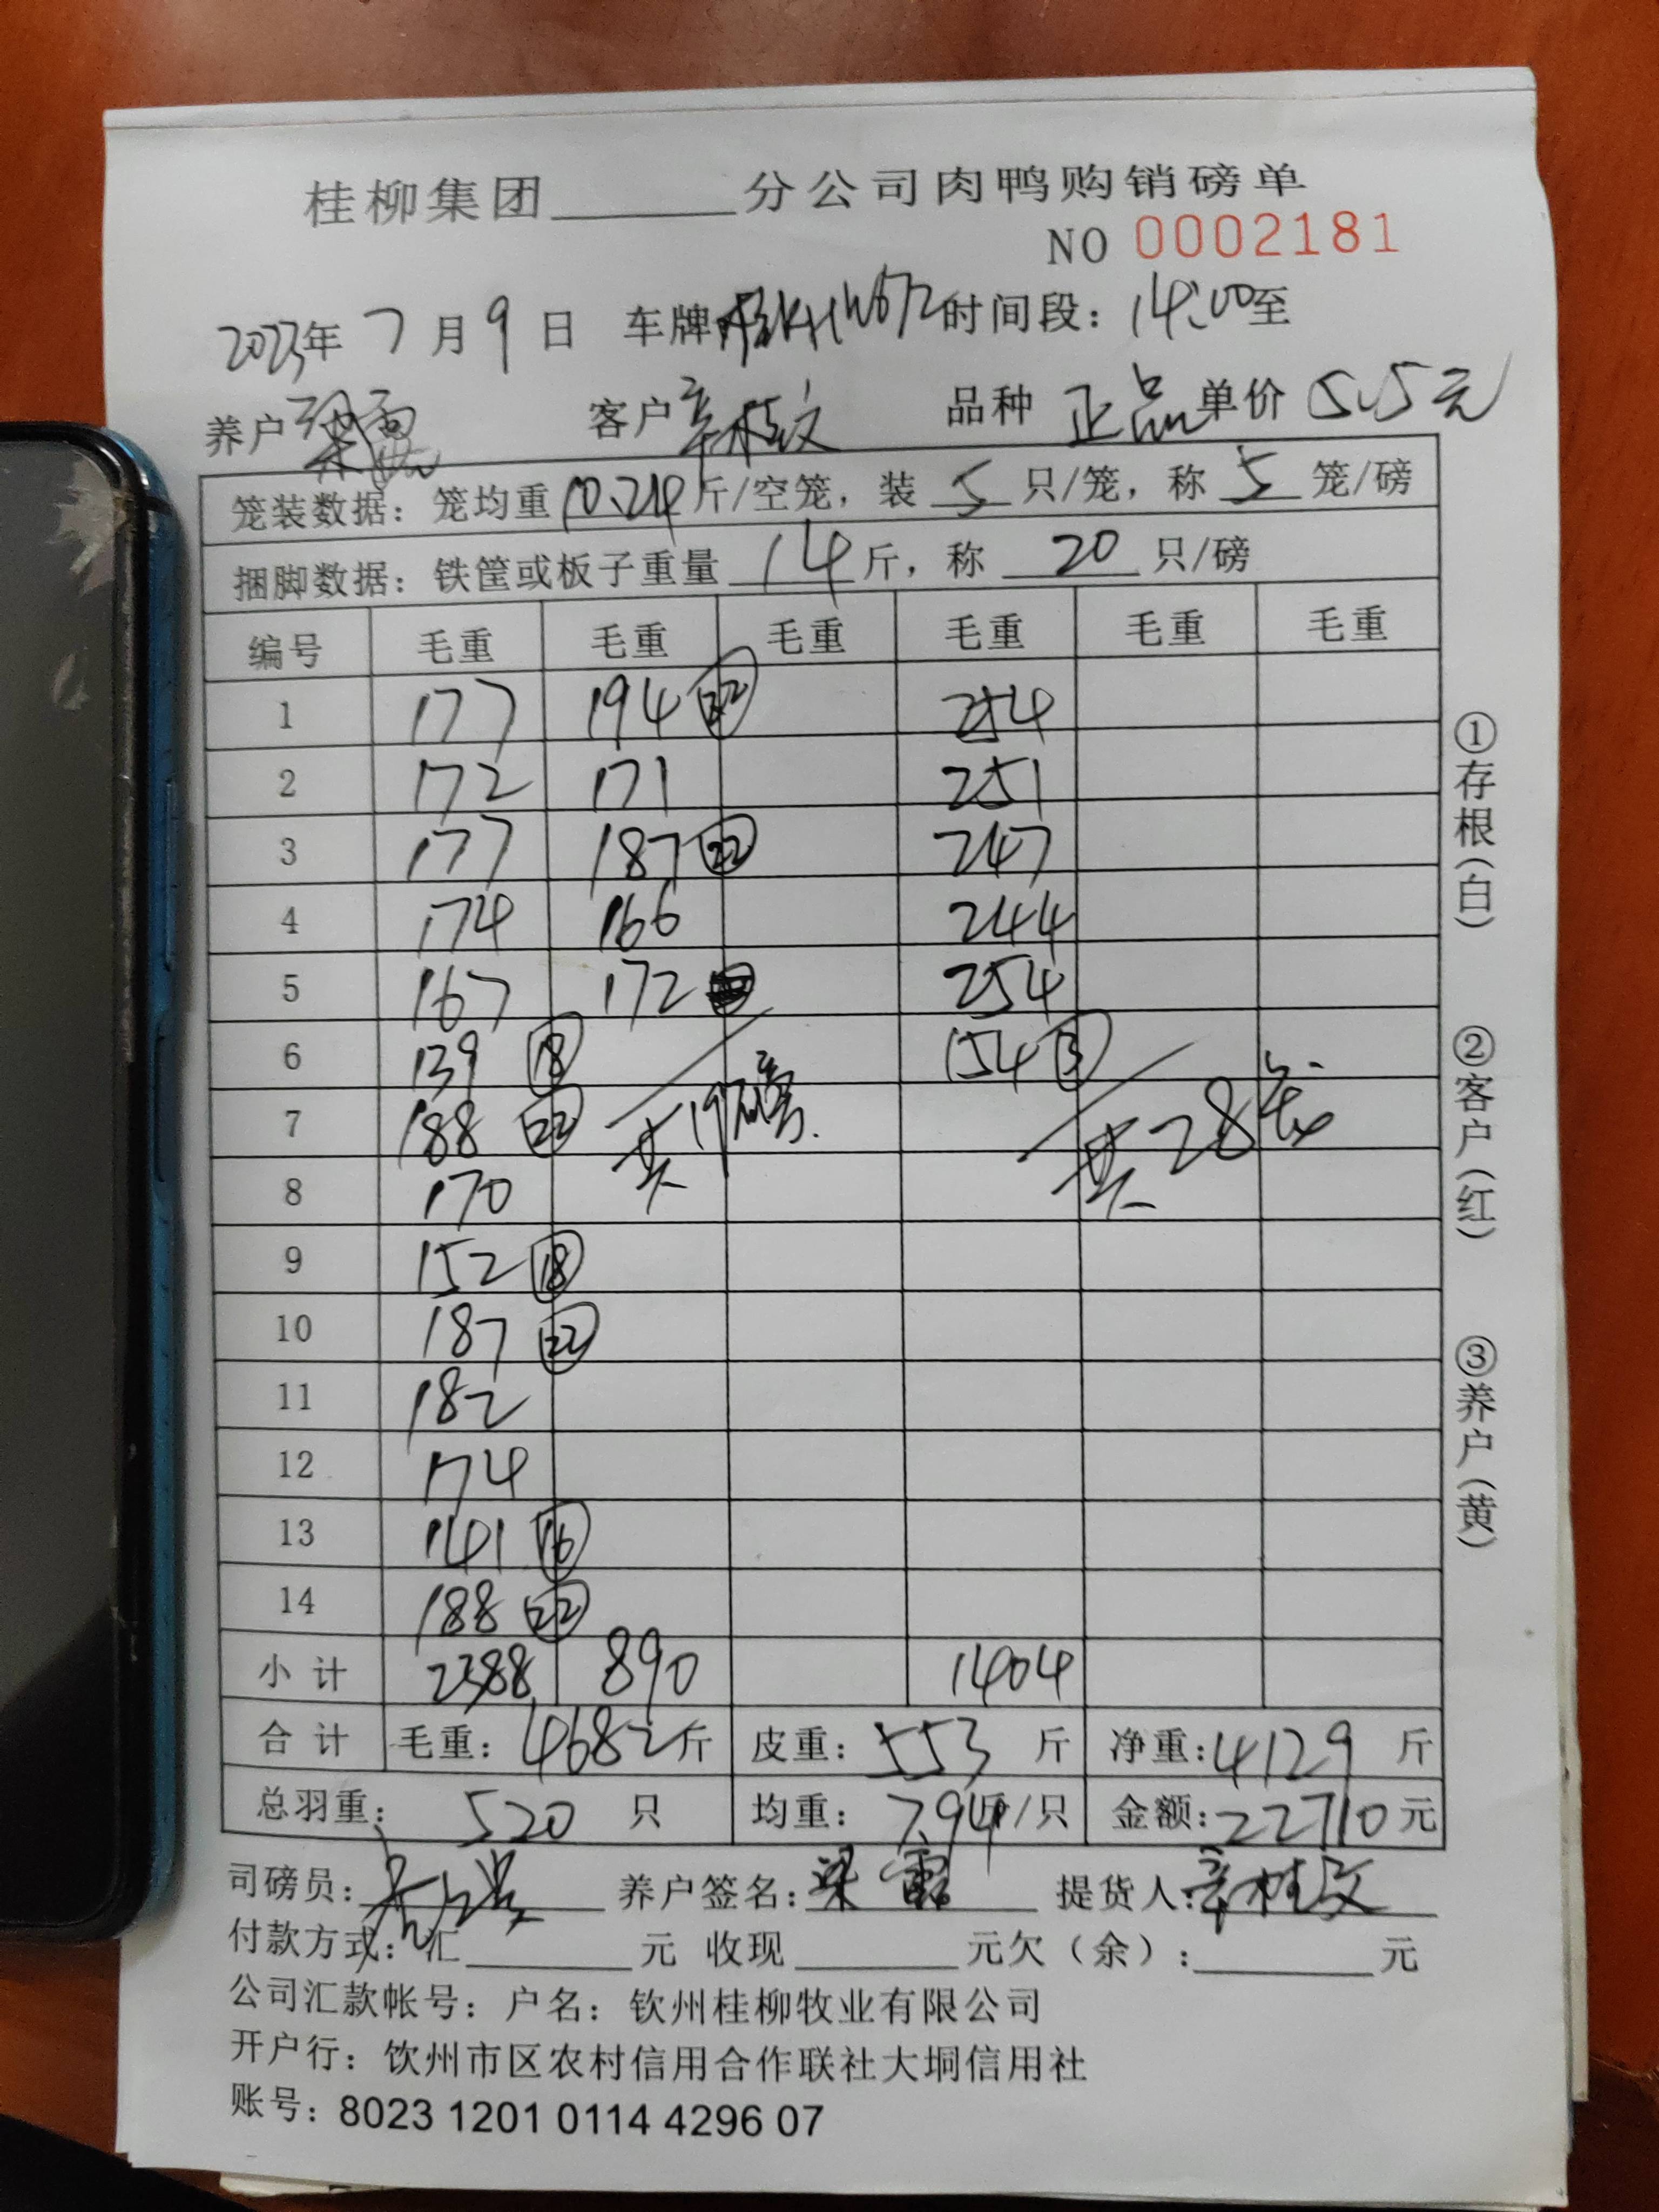 桂柳集团______分公司肉鸭购销磅单
NO 0002181
2023年 7月 9日 车牌 时间段：14:00至
养户 梁 客户 辛桂文 品种 正品 单价 5.5元
笼装数据：笼均重 10.214 斤/空笼，装 5 只/笼，称 5 笼/磅
捆脚数据：铁筐或板子重量 14 斤，称 20 只/磅
编号 毛重 毛重 毛重 毛重 毛重 毛重
1 177 194 22 254
2 172 171 251
3 177 187 22 247
4 174 166 244
5 167 172 254
6 139 18 154 3
7 188 22 共19磅. 共28笼
8 170
9 152 18
10 187 22
11 182
12 174
13 141 16
14 188 22
小计 2388 890 1404
合计 毛重：4682斤 皮重：553 斤 净重：4129 斤
总羽重：520 只 均重：7.94斤/只 金额：22710元
司磅员： 养户签名：梁 提货人：辛桂文
付款方式：汇______元 收现______元欠（余）：______元
公司汇款帐号：户名：钦州桂柳牧业有限公司
开户行：钦州市区农村信用合作联社大垌信用社
账号：8023 1201 0114 4296 07
①存根（白）
②客户（红）
③养户（黄）